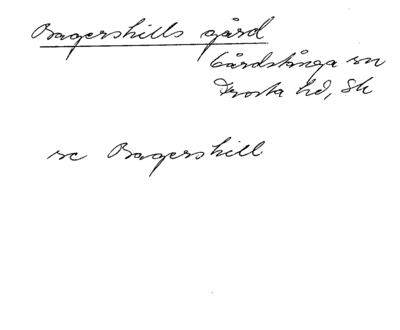 Bagershills gård
Gårdstånga sn
Frosta hd, Sk
se Bagershill